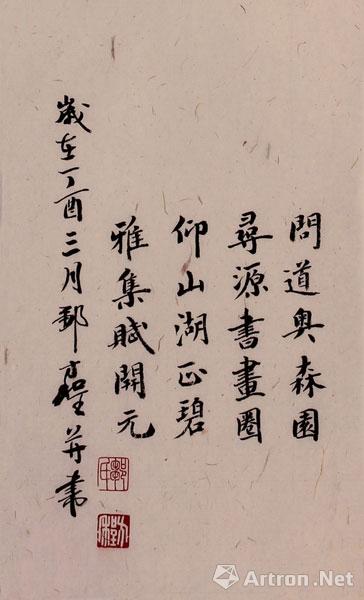 問道奥森園
尋源書畫圈
仰山湖正碧
雅集賦開元
歲在丁酉三月鄭 并書
Artron.Net